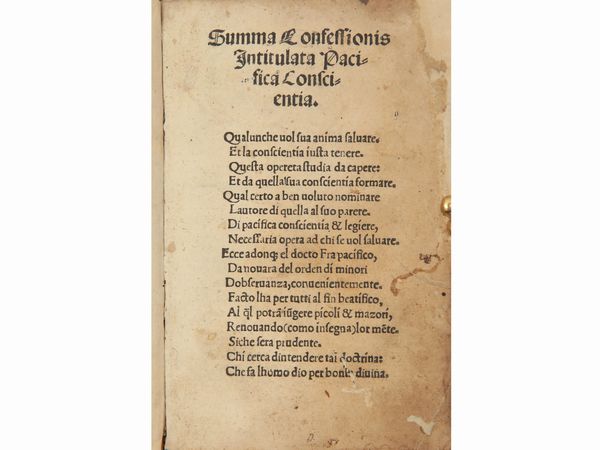 Summa Confessionis
Intitulata Paci-
fica Consci-
entia.
Qualunche uol sua anima saluare.
Et la conscientia iusta tenere.
Questa opereta studia da capere:
Et da quella sua conscientia formare.
Qual certo a ben uoluto nominare
Lautore di quella al suo parere.
Di pacifica conscientia & legiere,
Necessaria opera ad chi se uol saluare.
Ecce adonq; el docto Fra pacifico,
Da nouara del orden di minori
Dobseruanza, conuenientemente.
Facto lha per tutti al fin beatifico,
Al q̃l potrã iũgere picoli & mazori,
Renouando (como insegna) lor mẽte.
Siche sera prudente.
Chi cerca dintendere tal doctrina:
Che fa lhomo dio per bonta diuina.